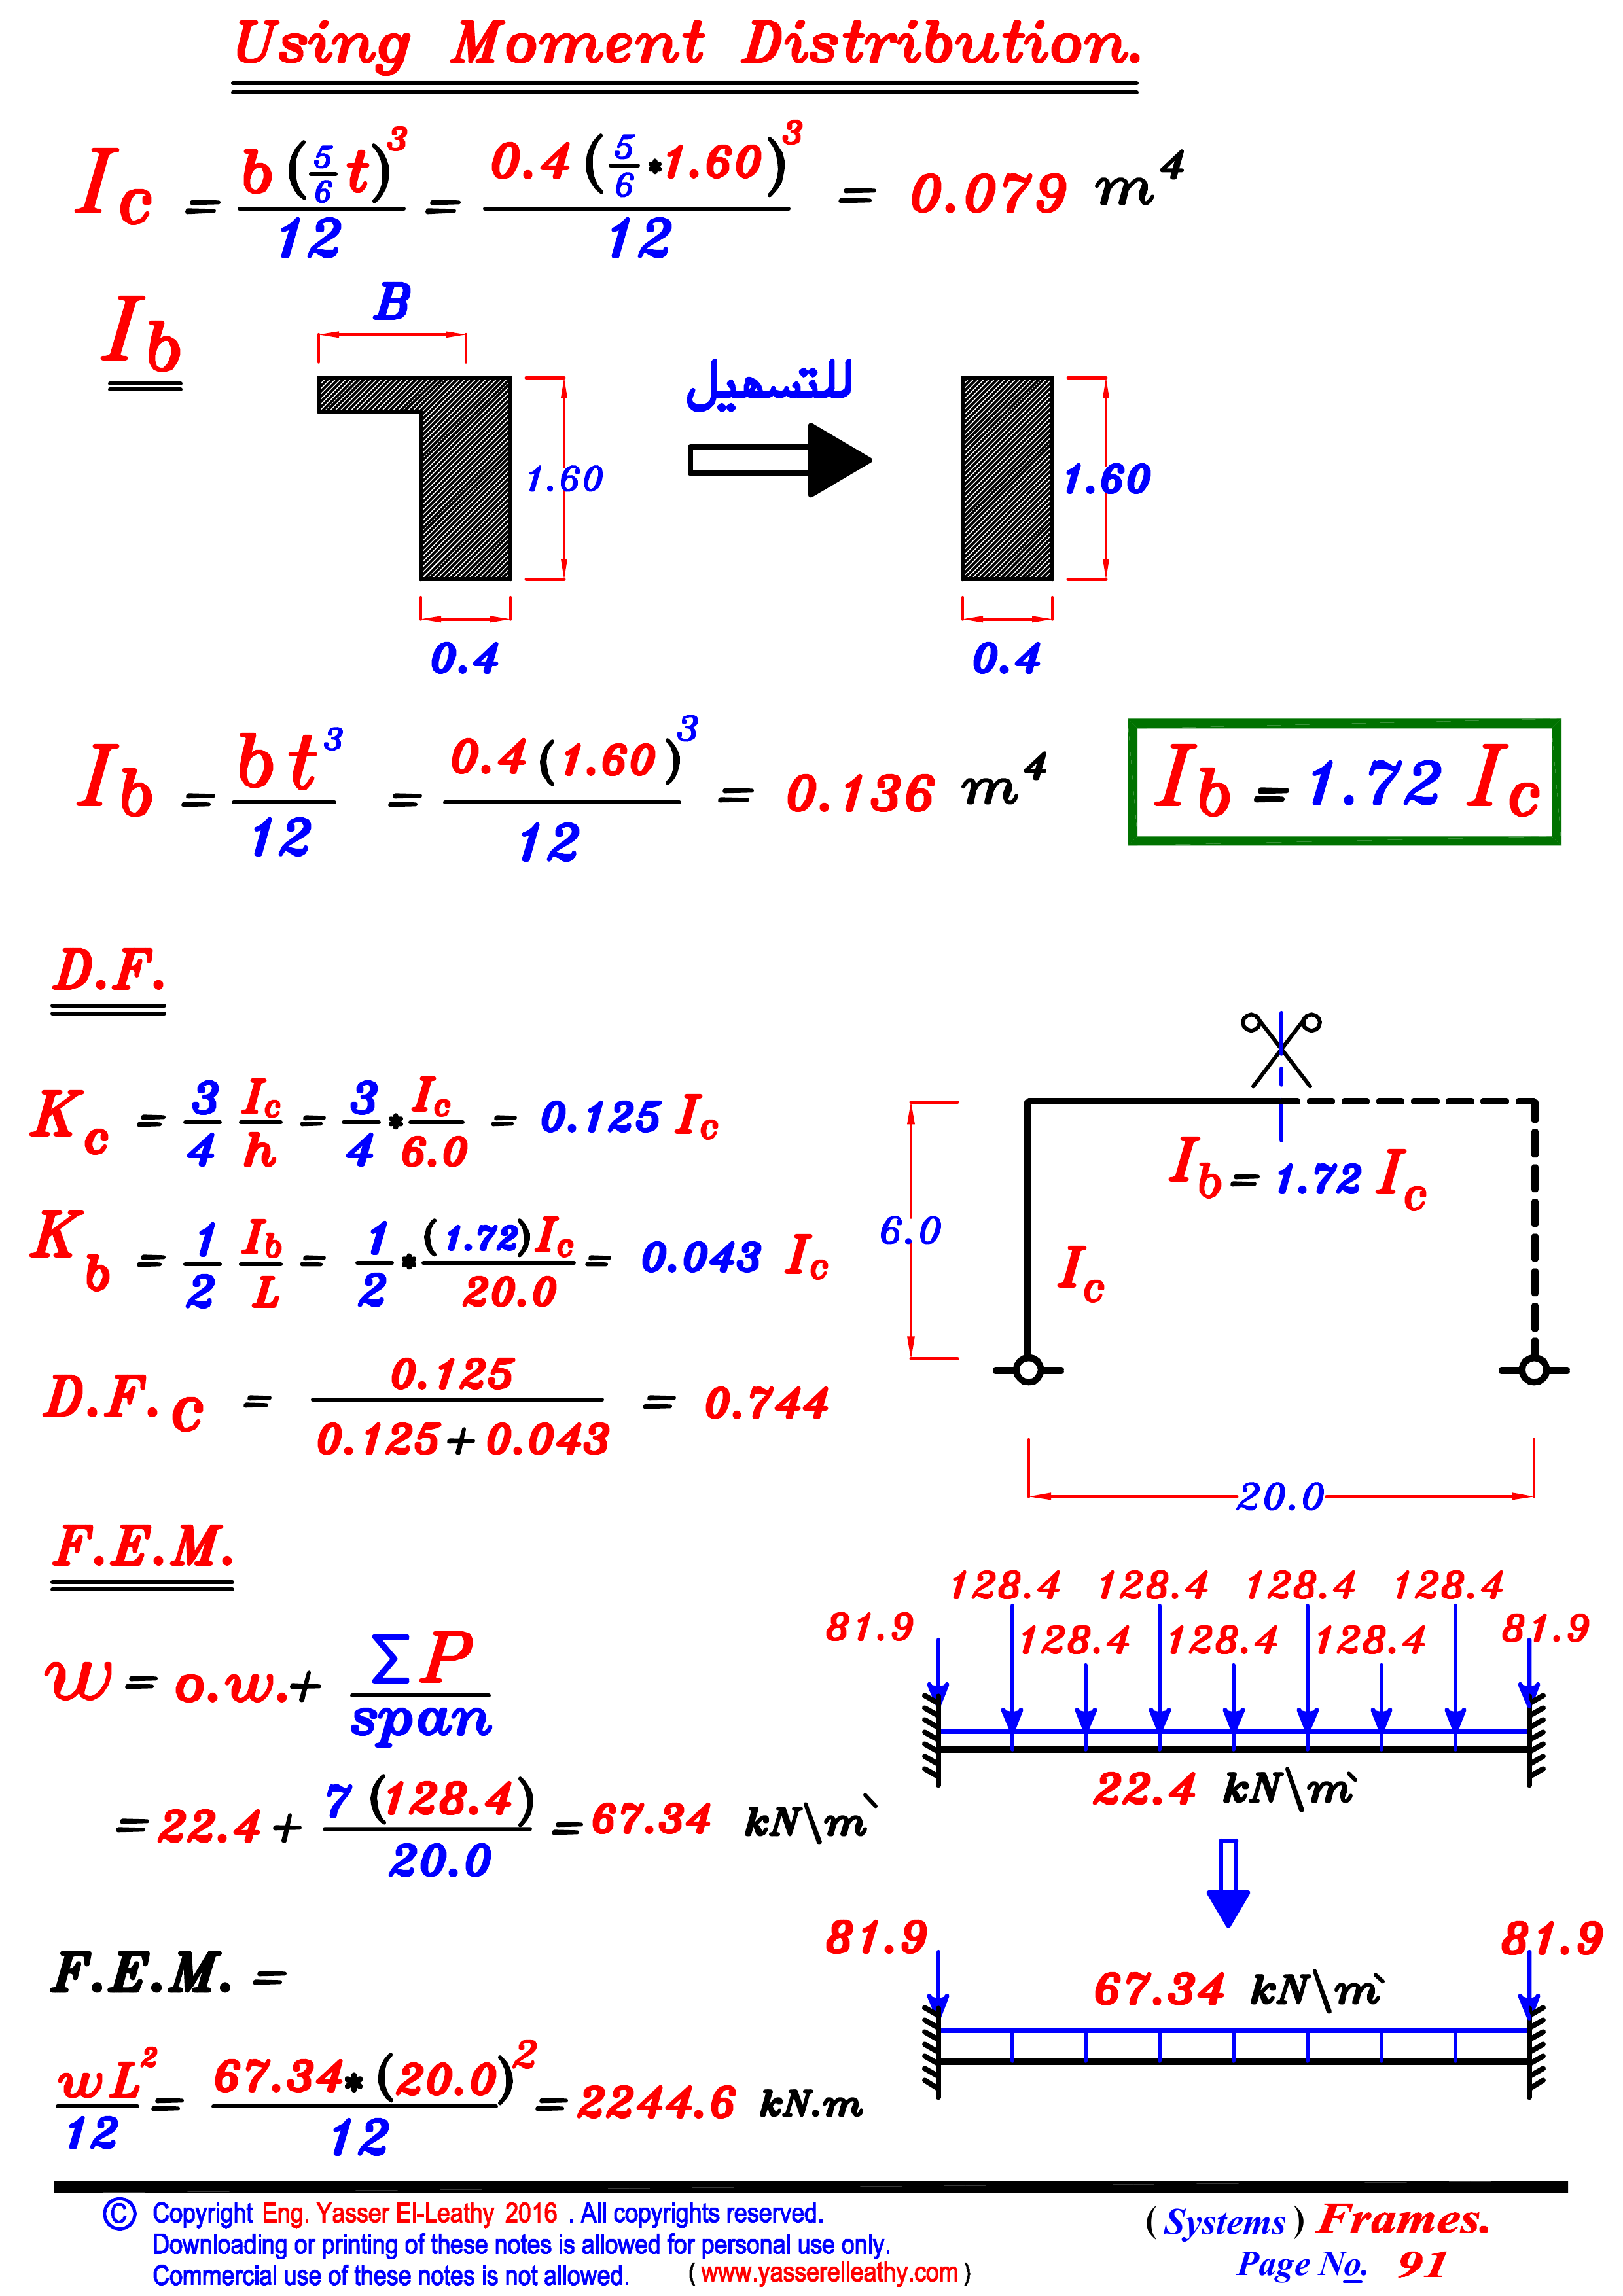 Using Moment Distribution.
I c = b (5/6 t)^3 / 12 = 0.4 (5/6 * 1.60)^3 / 12 = 0.079 m^4
I b
B
للتسهيل
1.60
1.60
0.4
0.4
I b = b t^3 / 12 = 0.4 (1.60)^3 / 12 = 0.136 m^4
I b = 1.72 I c
D.F.
K c = 3/4 I c / h = 3/4 * I c / 6.0 = 0.125 I c
K b = 1/2 I b / L = 1/2 * (1.72) I c / 20.0 = 0.043 I c
D.F. c = 0.125 / 0.125 + 0.043 = 0.744
I b = 1.72 I c
6.0
I c
20.0
F.E.M.
w = o.w. + ΣP / span
= 22.4 + 7 (128.4) / 20.0 = 67.34 kN\m`
F.E.M. =
wL^2 / 12 = 67.34 * (20.0)^2 / 12 = 2244.6 kN.m
128.4 128.4 128.4 128.4
81.9 128.4 128.4 128.4 81.9
22.4 kN\m`
81.9 81.9
67.34 kN\m`
© Copyright Eng. Yasser El-Leathy 2016 . All copyrights reserved.
Downloading or printing of these notes is allowed for personal use only.
Commercial use of these notes is not allowed. ( www.yasserelleathy.com )
( Systems ) Frames.
Page No. 91